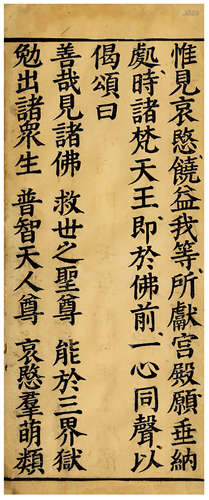 惟見哀愍饒益我等所獻宮殿願垂納
處時諸梵天王即於佛前一心同聲以
偈頌曰
善哉見諸佛 救世之聖尊 能於三界獄
勉出諸眾生 普智天人尊 哀愍羣萌類